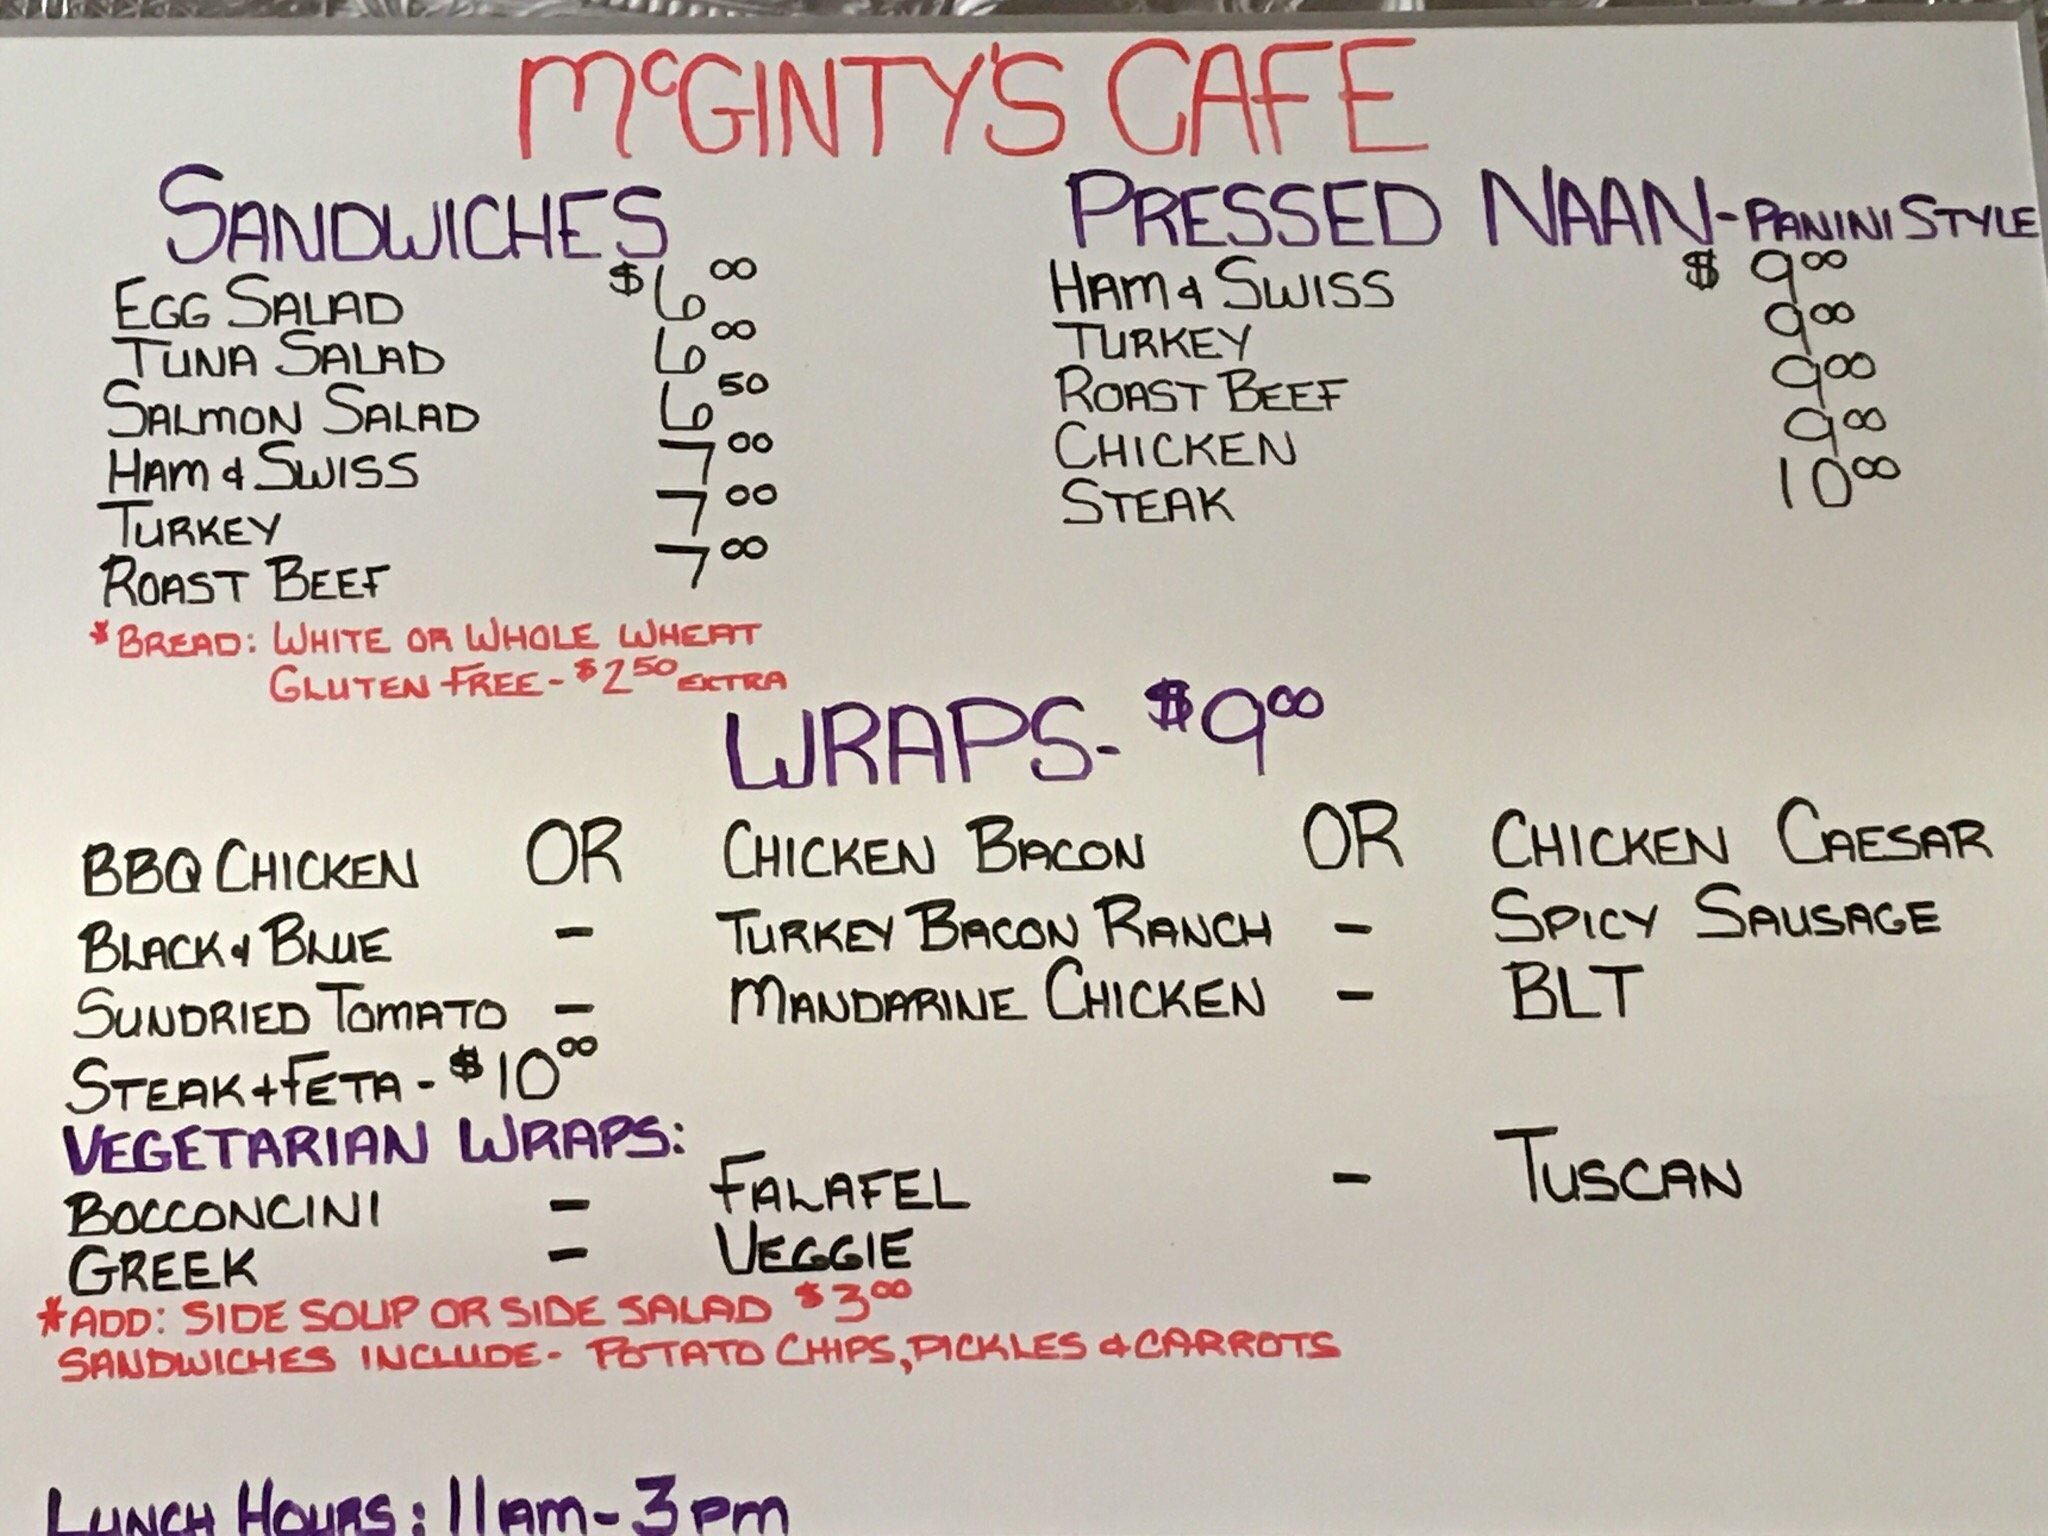 McGINTY'S CAFE
SANDWICHES
EGG SALAD $6.00
TUNA SALAD 6.00
SALMON SALAD 6.50
HAM & SWISS 7.00
TURKEY 7.00
ROAST BEEF 7.00
*BREAD: WHITE OR WHOLE WHEAT
GLUTEN FREE - $2.50 EXTRA
PRESSED NAAN - PANINI STYLE
HAM & SWISS $ 9.00
TURKEY 9.00
ROAST BEEF 9.00
CHICKEN 9.00
STEAK 10.00
WRAPS - $9.00
BBQ CHICKEN OR CHICKEN BACON OR CHICKEN CAESAR
BLACK & BLUE - TURKEY BACON RANCH - SPICY SAUSAGE
SUNDRIED TOMATO - MANDARINE CHICKEN - BLT
STEAK + FETA - $10.00
VEGETARIAN WRAPS:
BOCCONCINI - FALAFEL - TUSCAN
GREEK - VEGGIE
*ADD: SIDE SOUP OR SIDE SALAD $3.00
SANDWICHES INCLUDE - POTATO CHIPS, PICKLES & CARROTS
LUNCH HOURS: 11am - 3pm